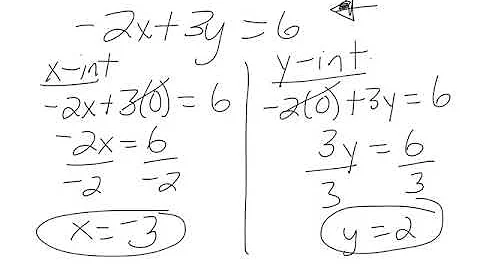 -2x+3y=6
x-int
-2x+3(0)=6
-2x=6
-2 -2
x=-3
y-int
-2(0)+3y=6
3y=6
3 3
y=2